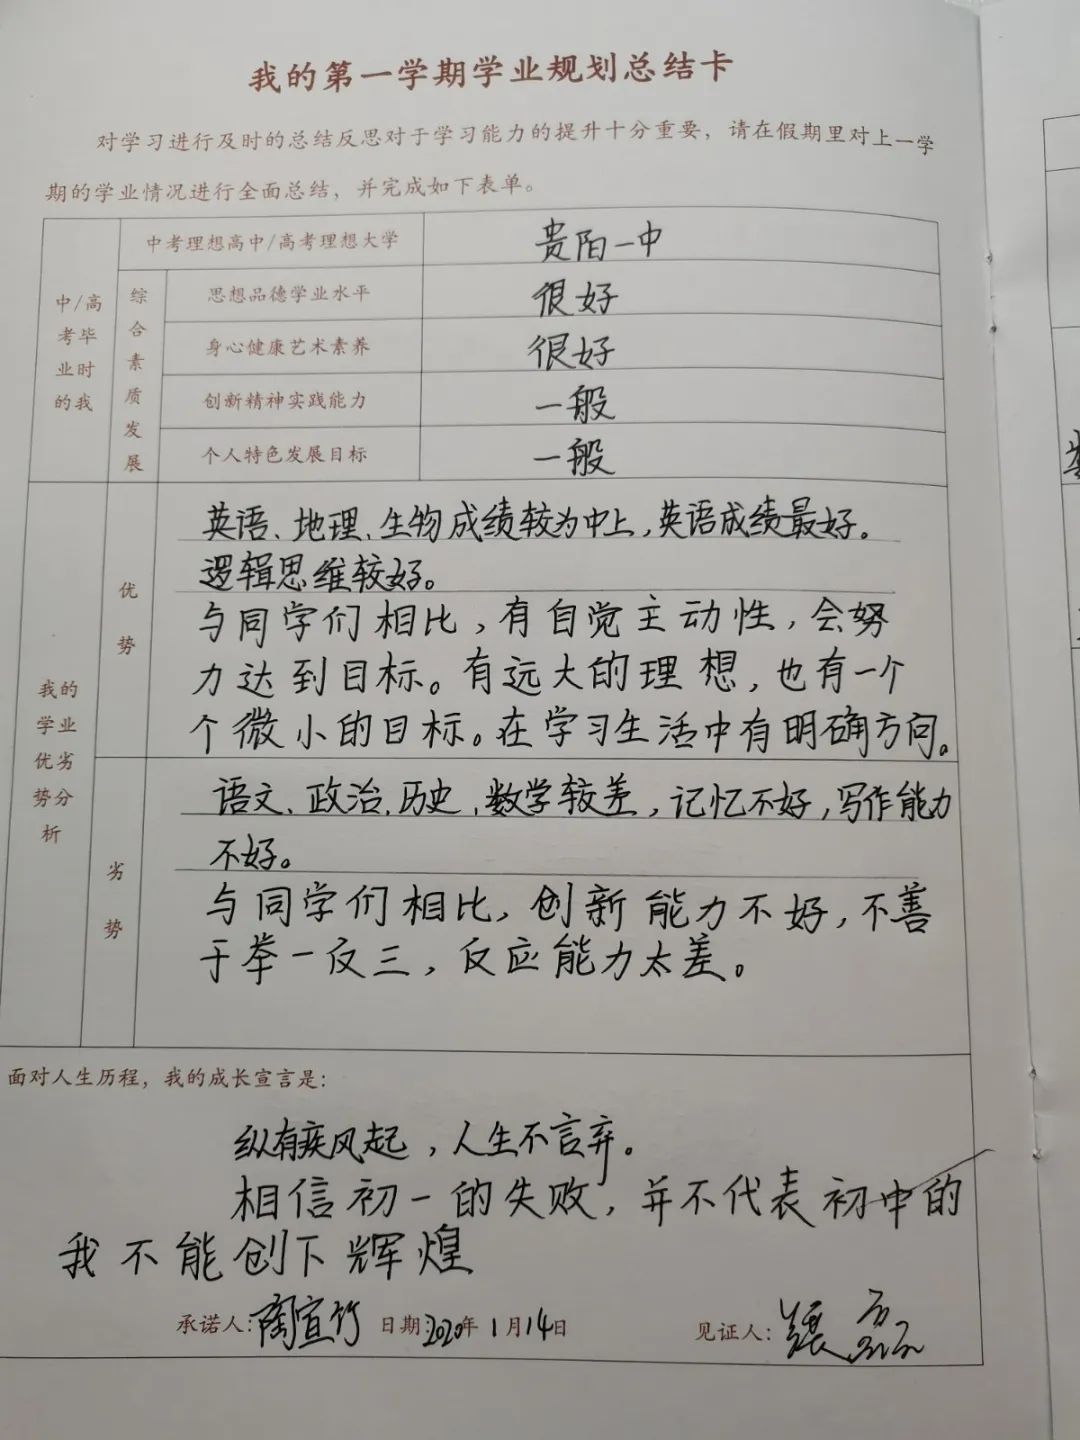 我的第一学期学业规划总结卡
对学习进行及时的总结反思对于学习能力的提升十分重要，请在假期里对上一学
期的学业情况进行全面总结，并完成如下表单。
中/高考毕业时的我
中考理想高中/高考理想大学 贵阳一中
综合素质发展
思想品德学业水平 很好
身心健康艺术素养 很好
创新精神实践能力 一般
个人特色发展目标 一般
我的学业优劣势分析
优势
英语、地理、生物成绩较为中上，英语成绩最好。
逻辑思维较好。
与同学们相比，有自觉主动性，会努
力达到目标。有远大的理想，也有一个
个微小的目标。在学习生活中有明确方向。
劣势
语文、政治、历史、数学较差，记忆不好，写作能力
不好。
与同学们相比，创新能力不好，不善
于举一反三，反应能力太差。
面对人生历程，我的成长宣言是：
纵有疾风起，人生不言弃。
相信初一的失败，并不代表初中的
我不能创下辉煌
承诺人：陶宣竹 日期：2020年1月14日 见证人：张磊